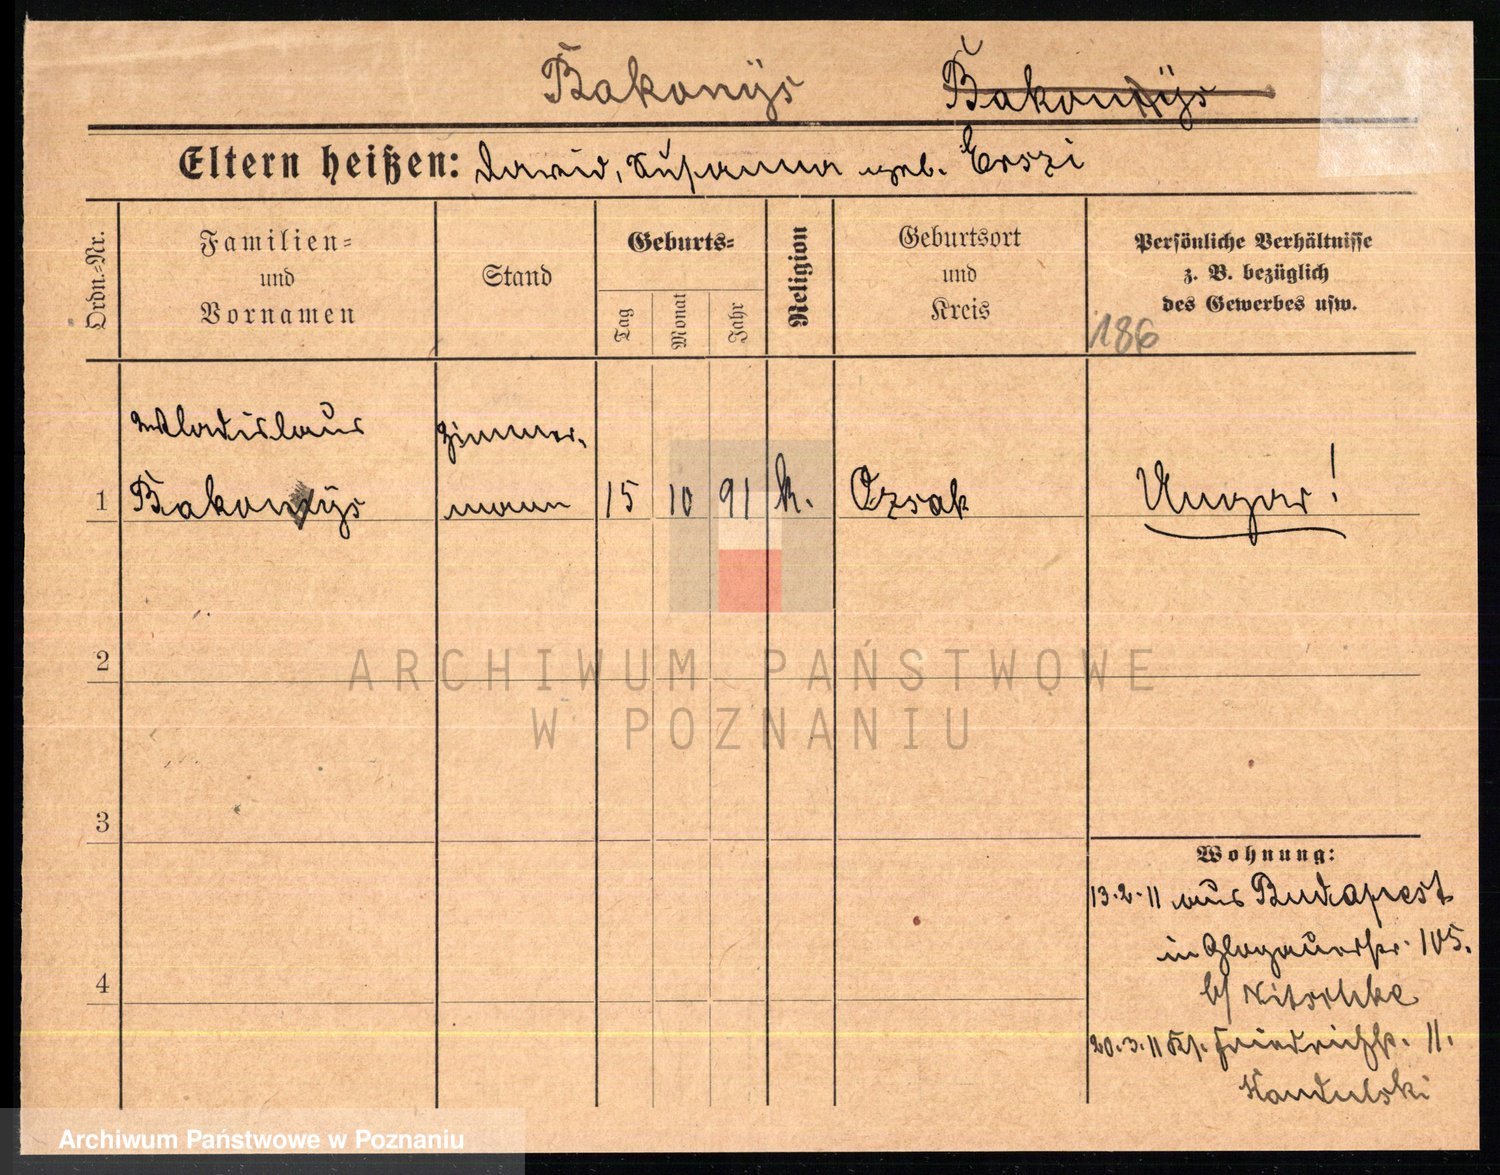 Bakonÿs Bakonÿs
Eltern heißen: David, Susanna geb. Erszi
Ordn.-Nr.
Familien-
und
Vornamen
Stand
Geburts-
Tag
Monat
Jahr
Religion
Geburtsort
und
Kreis
Persönliche Verhältnisse
z. B. bezüglich
des Gewerbes usw.
186
Wladislaus Zimmer-
1 Bakonÿs mann 15 10 91 k. Ozsak Ungar!
2
ARCHIWUM PAŃSTWOWE
W POZNANIU
3
Wohnung:
13.2.11 aus Budapest
in Glogauerstr. 105.
b/ Nitschke
20.3.11 Kl. Friedrichstr. 11.
Kandulski
4
Archiwum Państwowe w Poznaniu